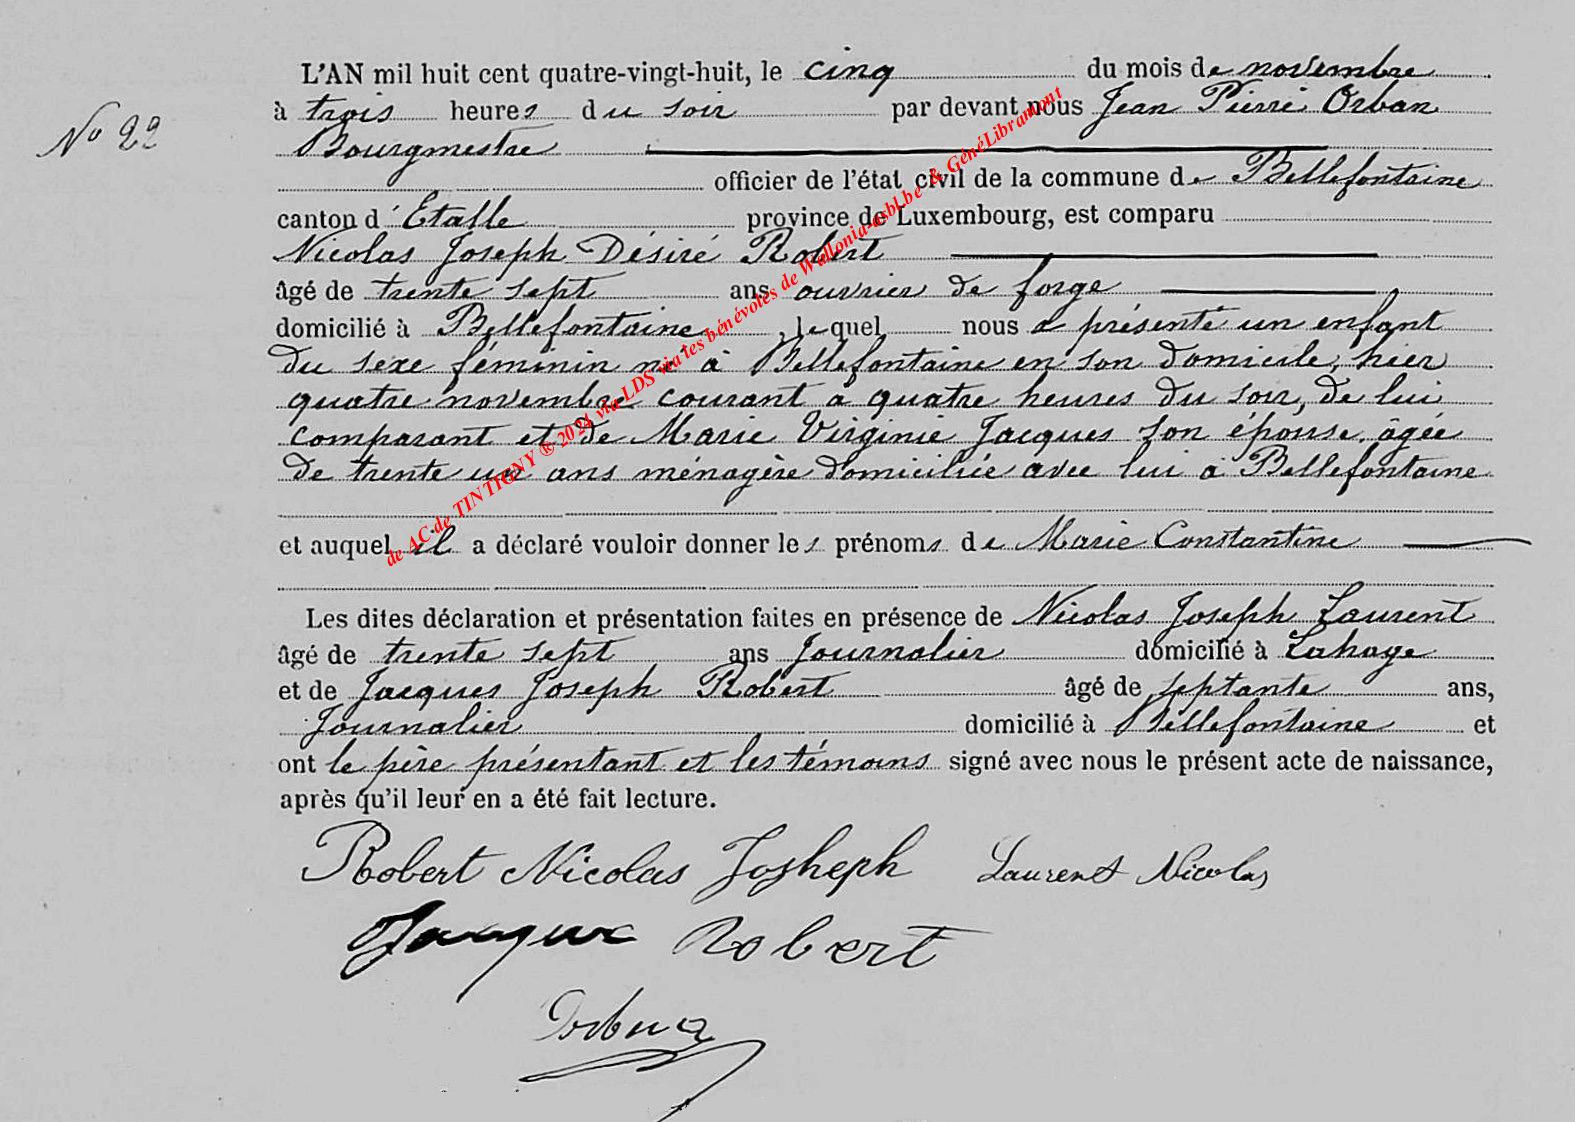 L'AN mil huit cent quatre-vingt-huit, le cinq du mois de novembre
No 22
à trois heures du soir par devant nous Jean Pierre Orban
Bourgmestre
officier de l'état civil de la commune de Bellefontaine
canton d'Etalle province de Luxembourg, est comparu
Nicolas Joseph Désiré Robert
âgé de trente sept ans ouvrier de forge
domicilié à Bellefontaine, lequel nous a présenté un enfant
du sexe féminin né à Bellefontaine en son domicile, hier
quatre novembre courant à quatre heures du soir, de lui
comparant et de Marie Virginie Jacques son épouse, âgée
de trente un ans ménagère domiciliée avec lui à Bellefontaine
et auquel il a déclaré vouloir donner les prénoms de Marie Constantine
Les dites déclaration et présentation faites en présence de Nicolas Joseph Laurent
âgé de trente sept ans Journalier domicilié à Lahage
et de Jacques Joseph Robert âgé de septante ans,
Journalier domicilié à Bellefontaine et
ont le père présentant et les témoins signé avec nous le présent acte de naissance,
après qu'il leur en a été fait lecture.
Robert Nicolas Josheph Laurent Nicolas
Jacque Robert
Orban
de AC de TINTIGNY ® 2024 via LDS via les bénévoles de Wallonia-asbl.be & GénéLibramont